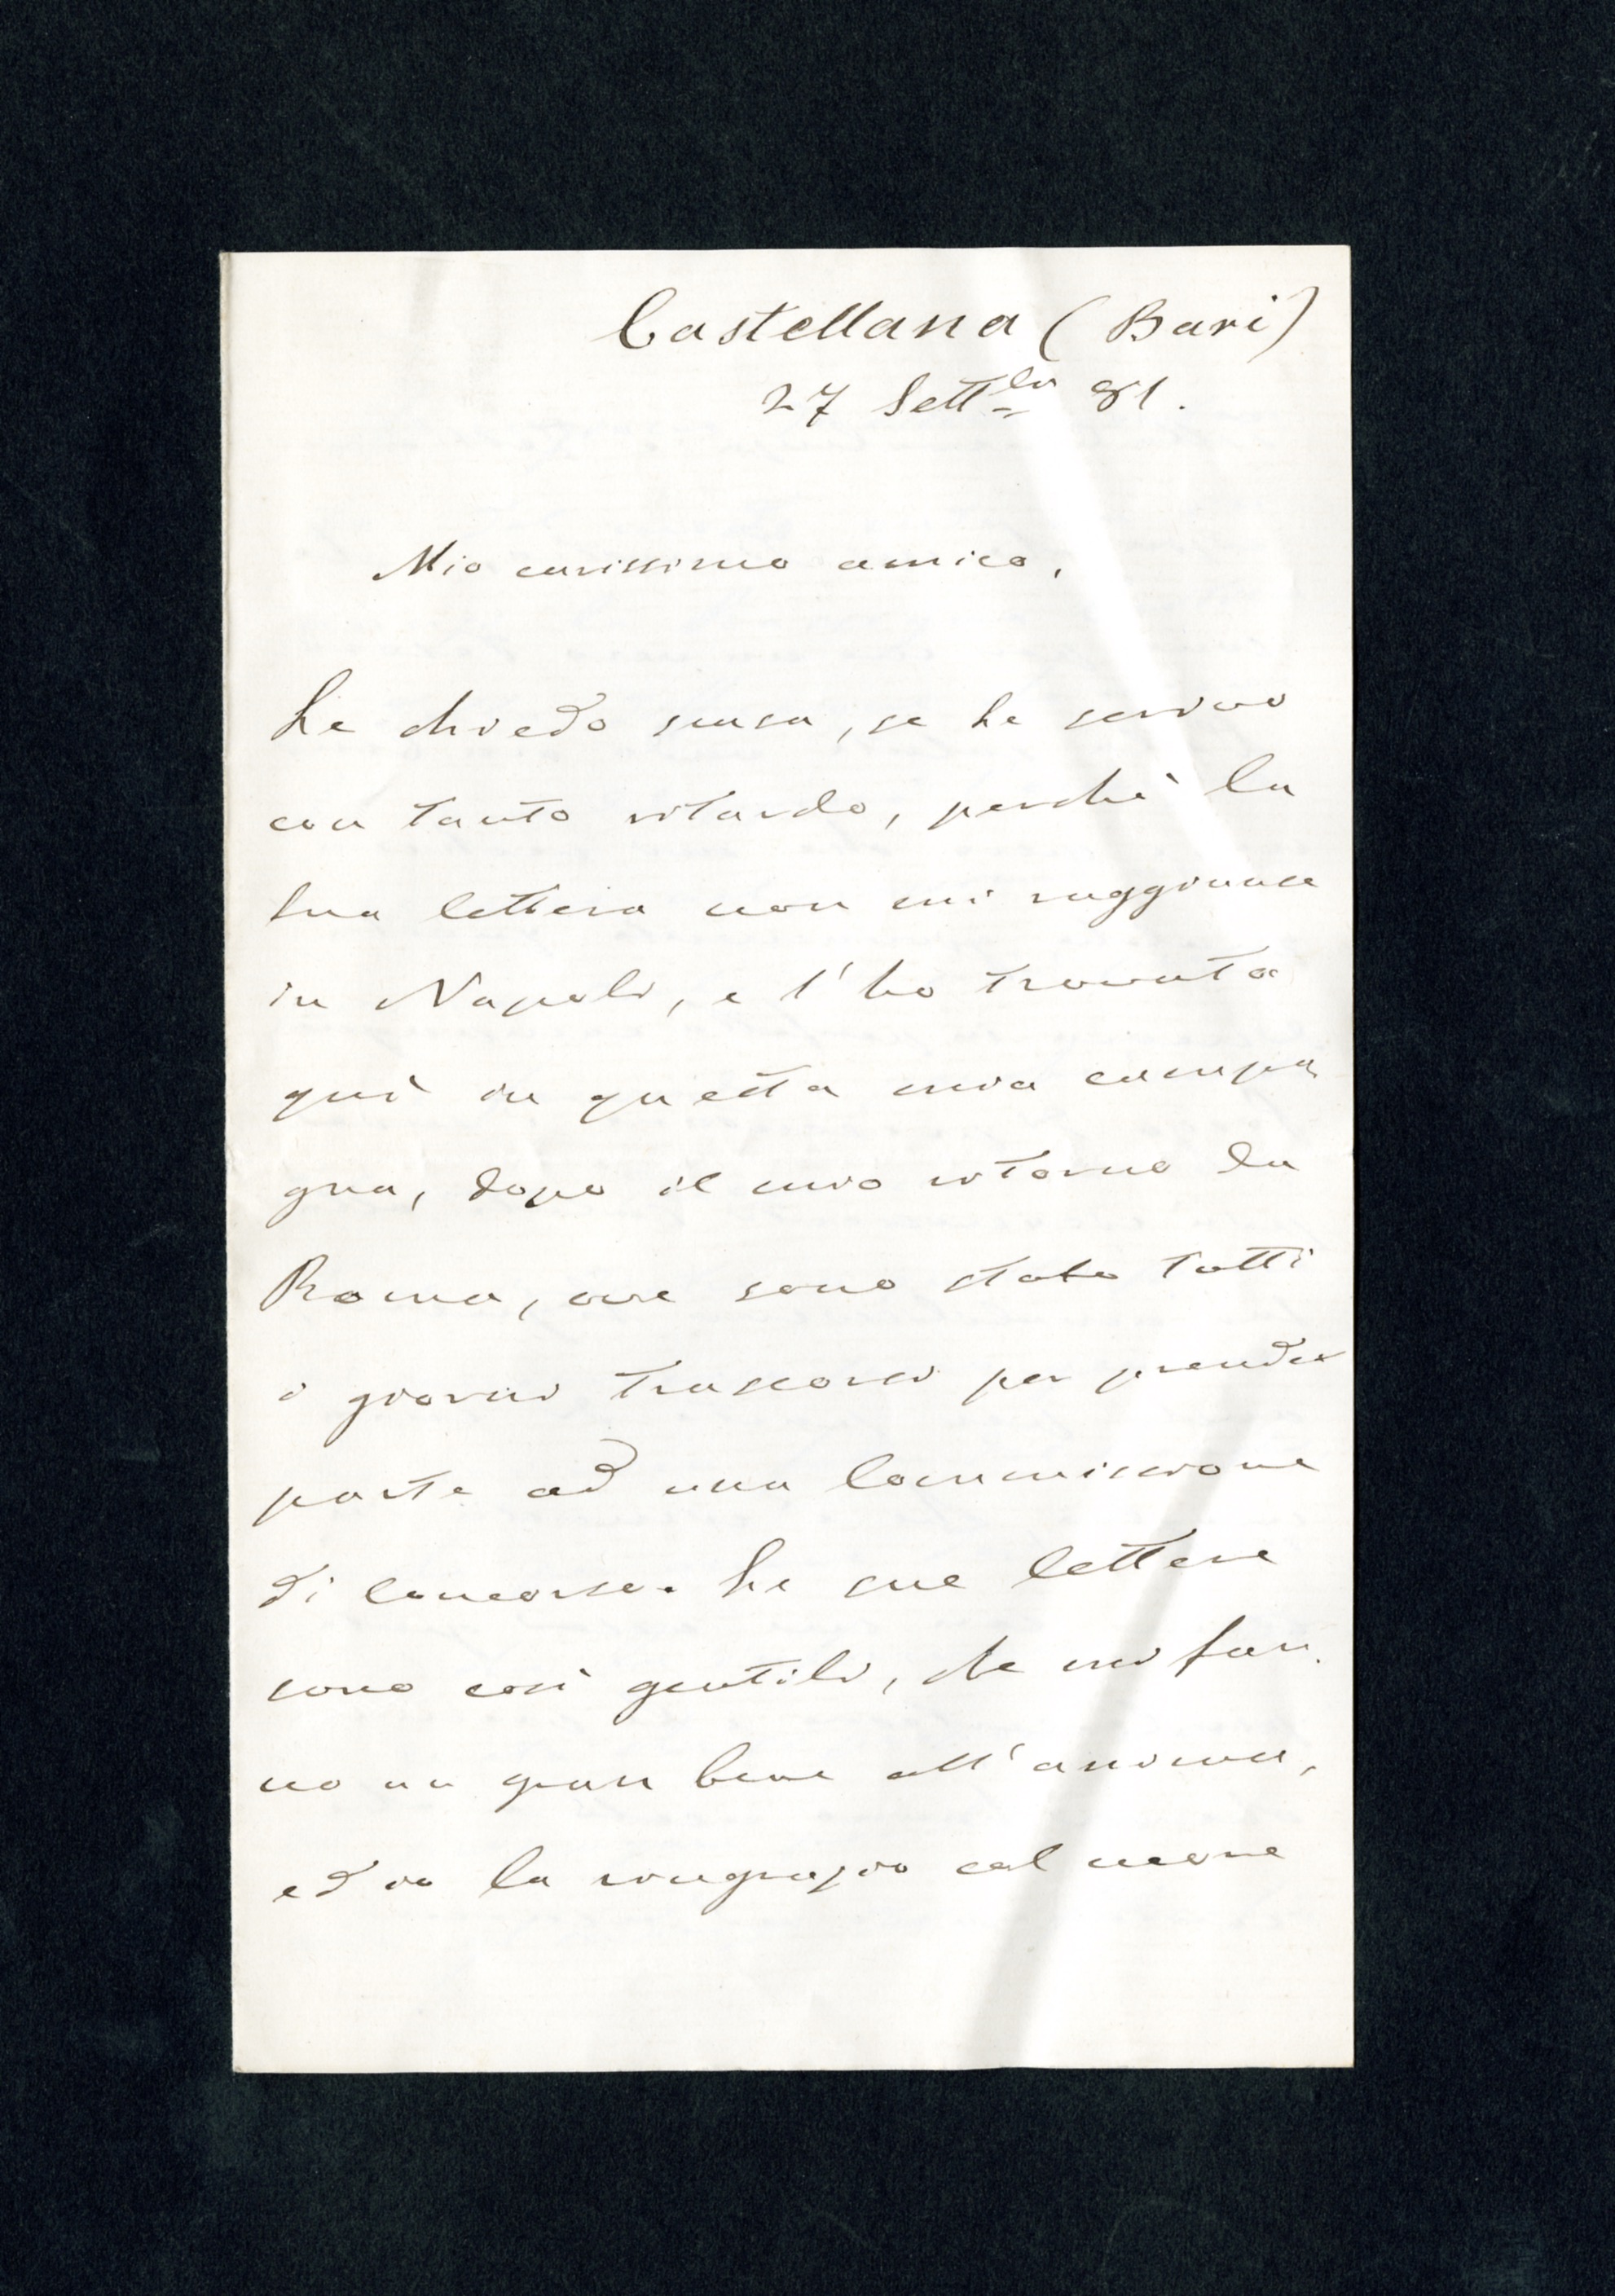 Castellana (Bari)
27 Sett.bre 81.
Mio carissimo amico,
Le chiedo scusa, se Le scrivo
con tanto ritardo, perchè la
Sua lettera non mi raggiunse
in Napoli, e l'ho trovata
quì in questa mia campa
gna, dopo il mio ritorno da
Roma, ove sono stato tutti
i giorni trascorsi per prender
parte ad una Commissione
di Concorso. Le sue lettere
sono così gentili, che mi fan
no un gran bene all'anima,
ed io la ringrazio col cuore